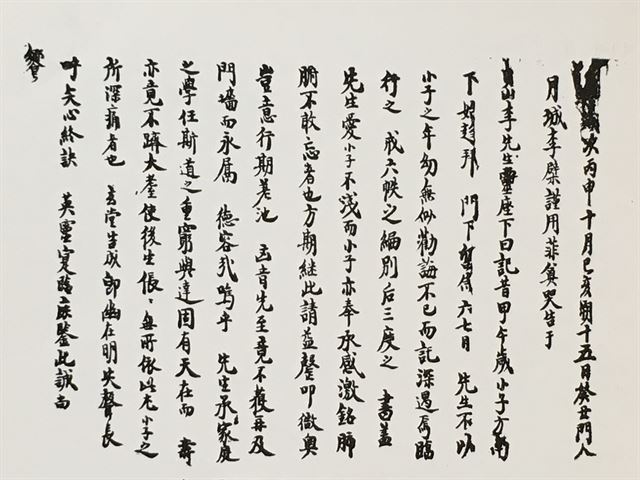 歲次丙申十月己亥朔十五日癸丑門人
月城李檗謹用菲奠哭告于
山李先生靈座下曰記昔甲午歲小子方南
下始趍拜 門下暫侍六七日 先生不以
小子之年幼無似勸誨不已而託深過焉臨
行之 戒六帙之編別后三度之 書盖
先生愛小子不淺而小子亦奉承感激銘肺
腑不敢忘者也方期継此請益罄叩微奥
豈意行期差池 凶音先至竟不獲再及
門墻而永属 德容我嗚乎 先生承家庭
之學任斯道之重窮與達固有天在而 壽
亦竟不躋大耋使後生倀〻無所依此尤小子之
所深痛者也 ⁠堂⁠成即幽在明失聲長
吁矢心終訣 英靈寔臨庶鑒此誠尚
饗